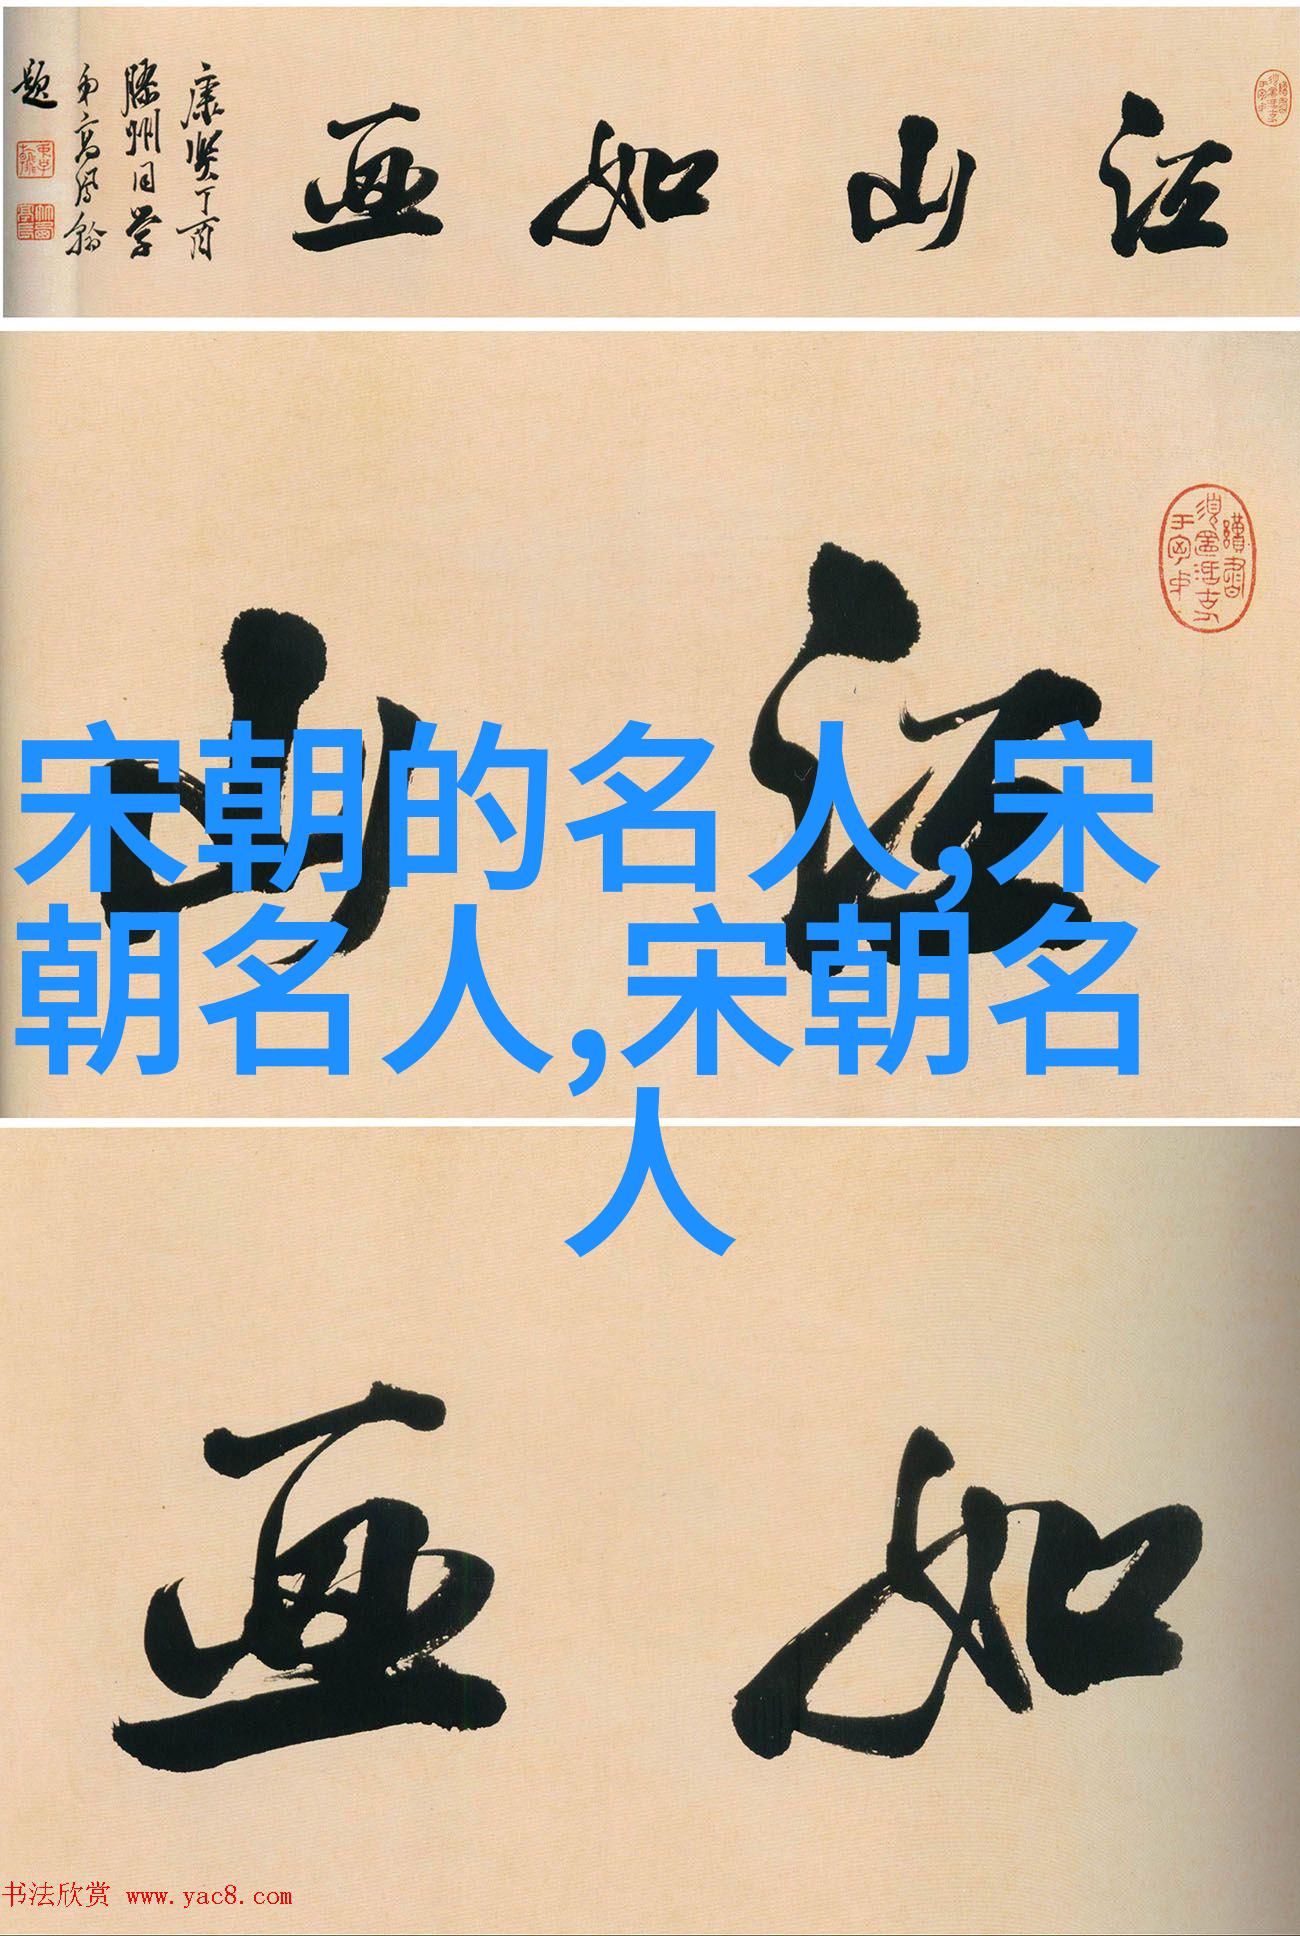 江山如画
康熙丁酉
滕州同学
弟高凤翰
题
江山
宋朝的名人,宋
朝名人,宋朝名
人
如画
书法欣赏 www.yac8.com